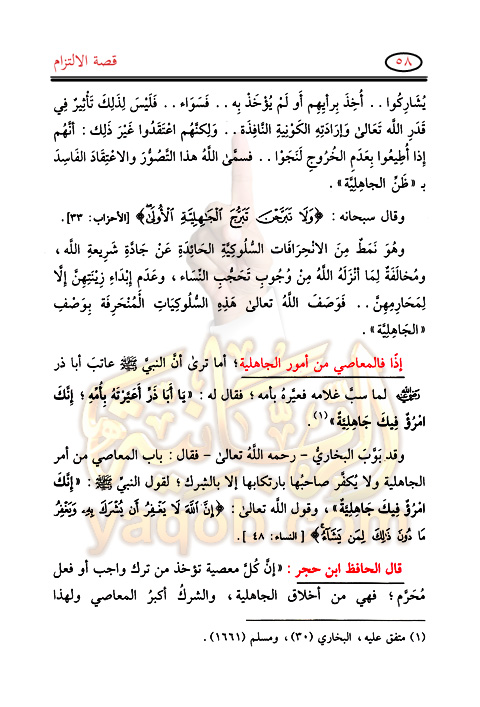 ٥٨
قصة الالتزام
يُشَارِكُوا . . أُخِذَ بِرأيِهِم أَو لَمْ يُؤْخَذْ بِه . . فَسَوَاء . . فَلَيْسَ لِذَلِكَ تَأْثِيرٌ فِي
قَدَرِ اللَّه تَعَالىٰ وَإِرَادَتِهِ الكَوْنِيَّةِ النَّافِذَةِ . . وَلكِنَّهُم اعْتَقَدُوا غَيْرَ ذَلِك : أنَّهُم
إِذَا أُطِيعُوا بِعَدَمِ الخُرُوجِ لَنَجَوْا . . فسمَّىٰ اللَّهُ هذا التَّصَوُّرَ والاعْتِقَادَ الفَاسِدَ
بـ «ظَنِّ الجاهليَّة» .
وقال سبحانه : ﴿وَلَا تَبَرَّجْنَ تَبَرُّجَ ٱلْجَٰهِلِيَّةِ ٱلْأُولَىٰ﴾ [الأحزاب: ٣٣] .
وهُوَ نَمَطٌ مِنَ الانْحِرَافَاتِ السُّلُوكِيَّةِ الحَائِدَةِ عَنْ جَادَّةِ شَرِيعَةِ اللَّه ،
ومُخالَفَةٌ لِمَا أَنْزَلَهُ اللَّهُ مِنْ وُجُوبِ تَحَجُّبِ النِّسَاء ، وعَدَمِ إِبْدَاءِ زِينَتِهِنَّ إِلَّا
لِمَحَارِمِهِنَّ . . فَوَصَفَ اللَّهُ تعالىٰ هَذِهِ السُّلُوكِيَاتِ الْمُنْحَرِفَة بِوَصْفِ
«الجَاهِلِيَّة» .
إذًا فالمعاصي من أمور الجاهلية ؛ أما ترىٰ أنَّ النبيَّ ﷺ عاتبَ أبا ذر
رضي الله عنه لما سبَّ غلامه فعيَّرهُ بأمه ؛ فقال له : «يَا أَبَا ذَرٍّ أَعَيَّرْتَهُ بِأُمِّهِ ؛ إِنَّكَ
امْرُؤٌ فِيكَ جَاهِلِيَّةٌ»(١) .
وقد بَوَّبَ البخاريُّ - رحمه اللَّهُ تعالىٰ - فقال : باب المعاصي من أمر
الجاهلية ولا يكفَّر صاحبُها بارتكابها إلا بالشرك ؛ لقول النبيِّ ﷺ : «إِنَّكَ
امْرُؤٌ فِيكَ جَاهِلِيَّةٌ» ، وقول اللَّه تعالىٰ : ﴿إِنَّ ٱللَّهَ لَا يَغْفِرُ أَن يُشْرَكَ بِهِۦ وَيَغْفِرُ
مَا دُونَ ذَٰلِكَ لِمَن يَشَآءُ﴾ [النساء: ٤٨] .
قال الحافظ ابن حجر : «إنَّ كُلَّ معصية تؤخذ من ترك واجب أو فعل
مُحَرَّم ؛ فهي من أخلاق الجاهلية ، والشركُ أكبرُ المعاصي ولهذا
(١) متفق عليه ، البخاري (٣٠) ، ومسلم (١٦٦١) .
yaqob.com